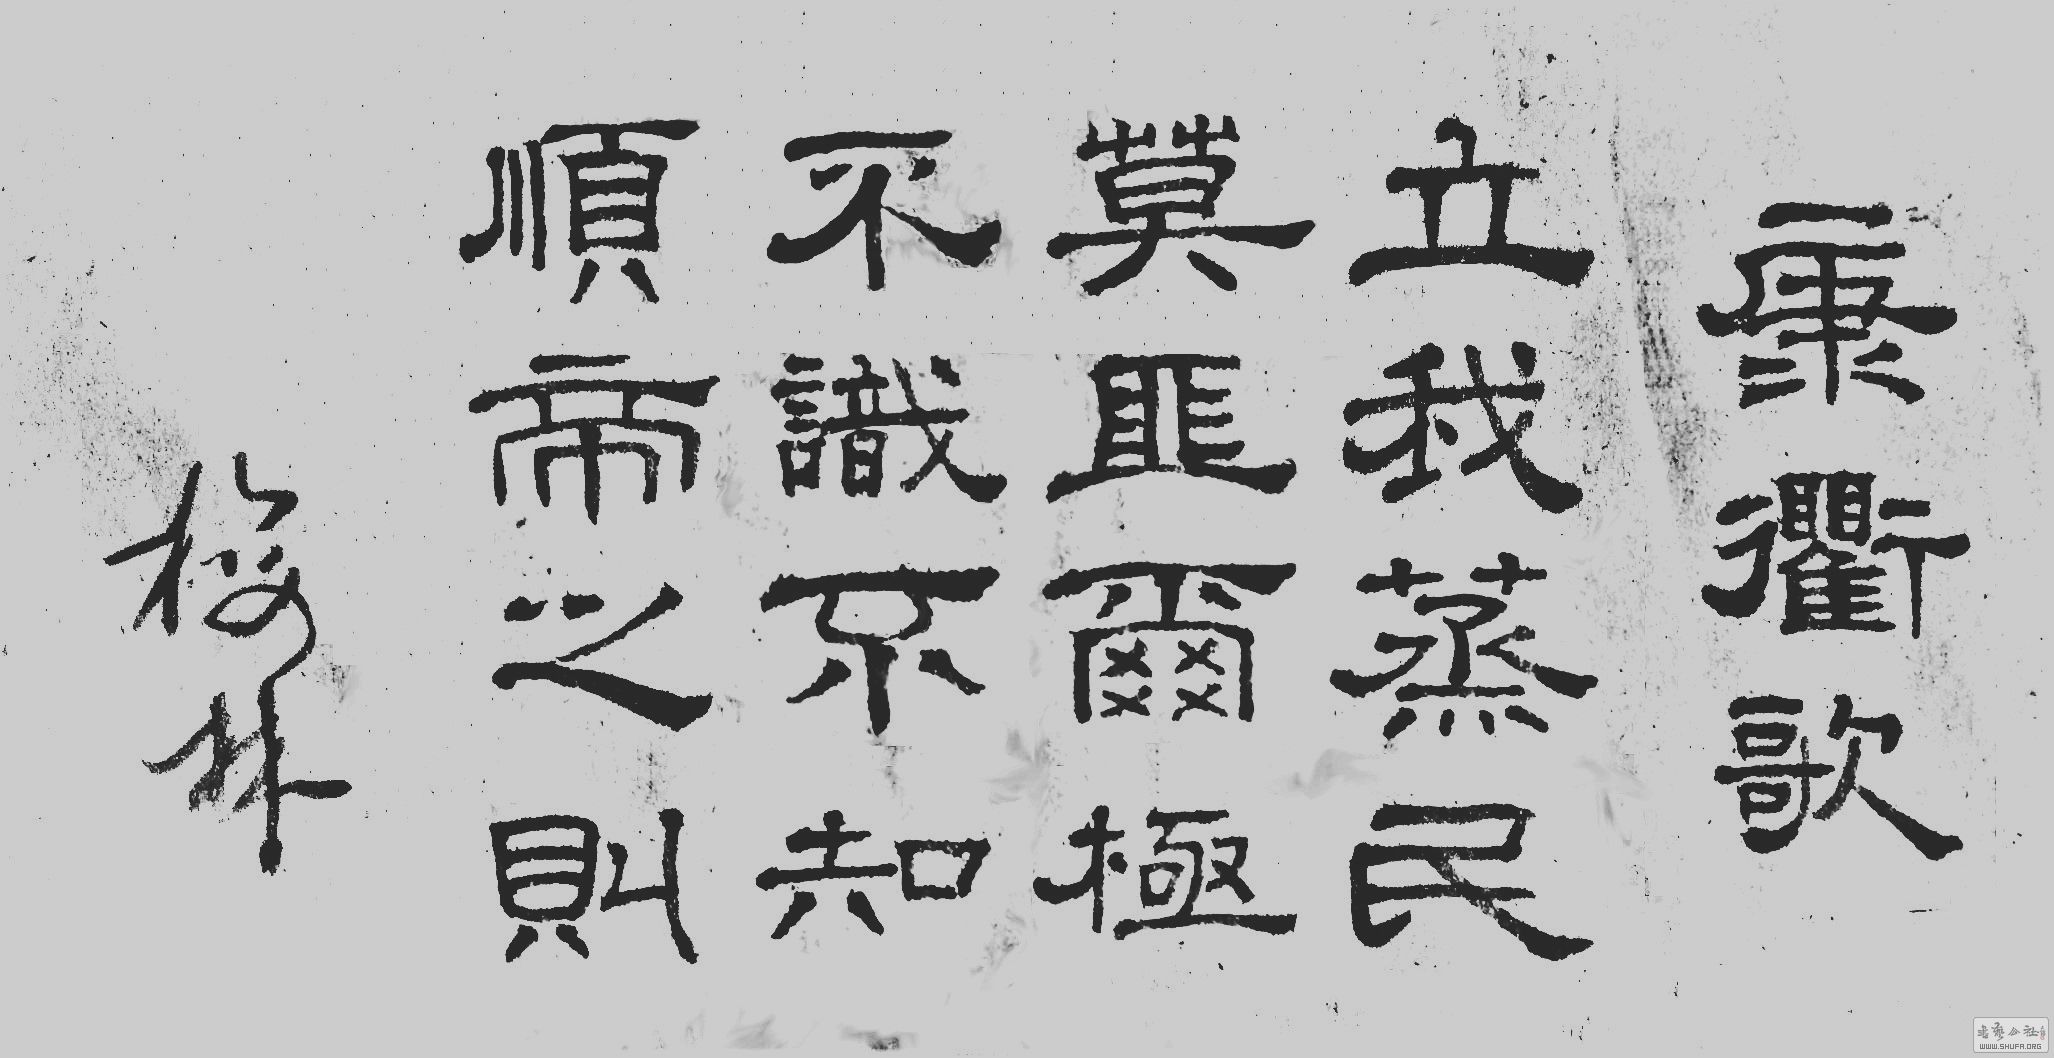 康衢歌
立我蒸民
莫匪爾極
不識不知
順帝之則
梅林
書藝公社
WWW.SHUFA.ORG